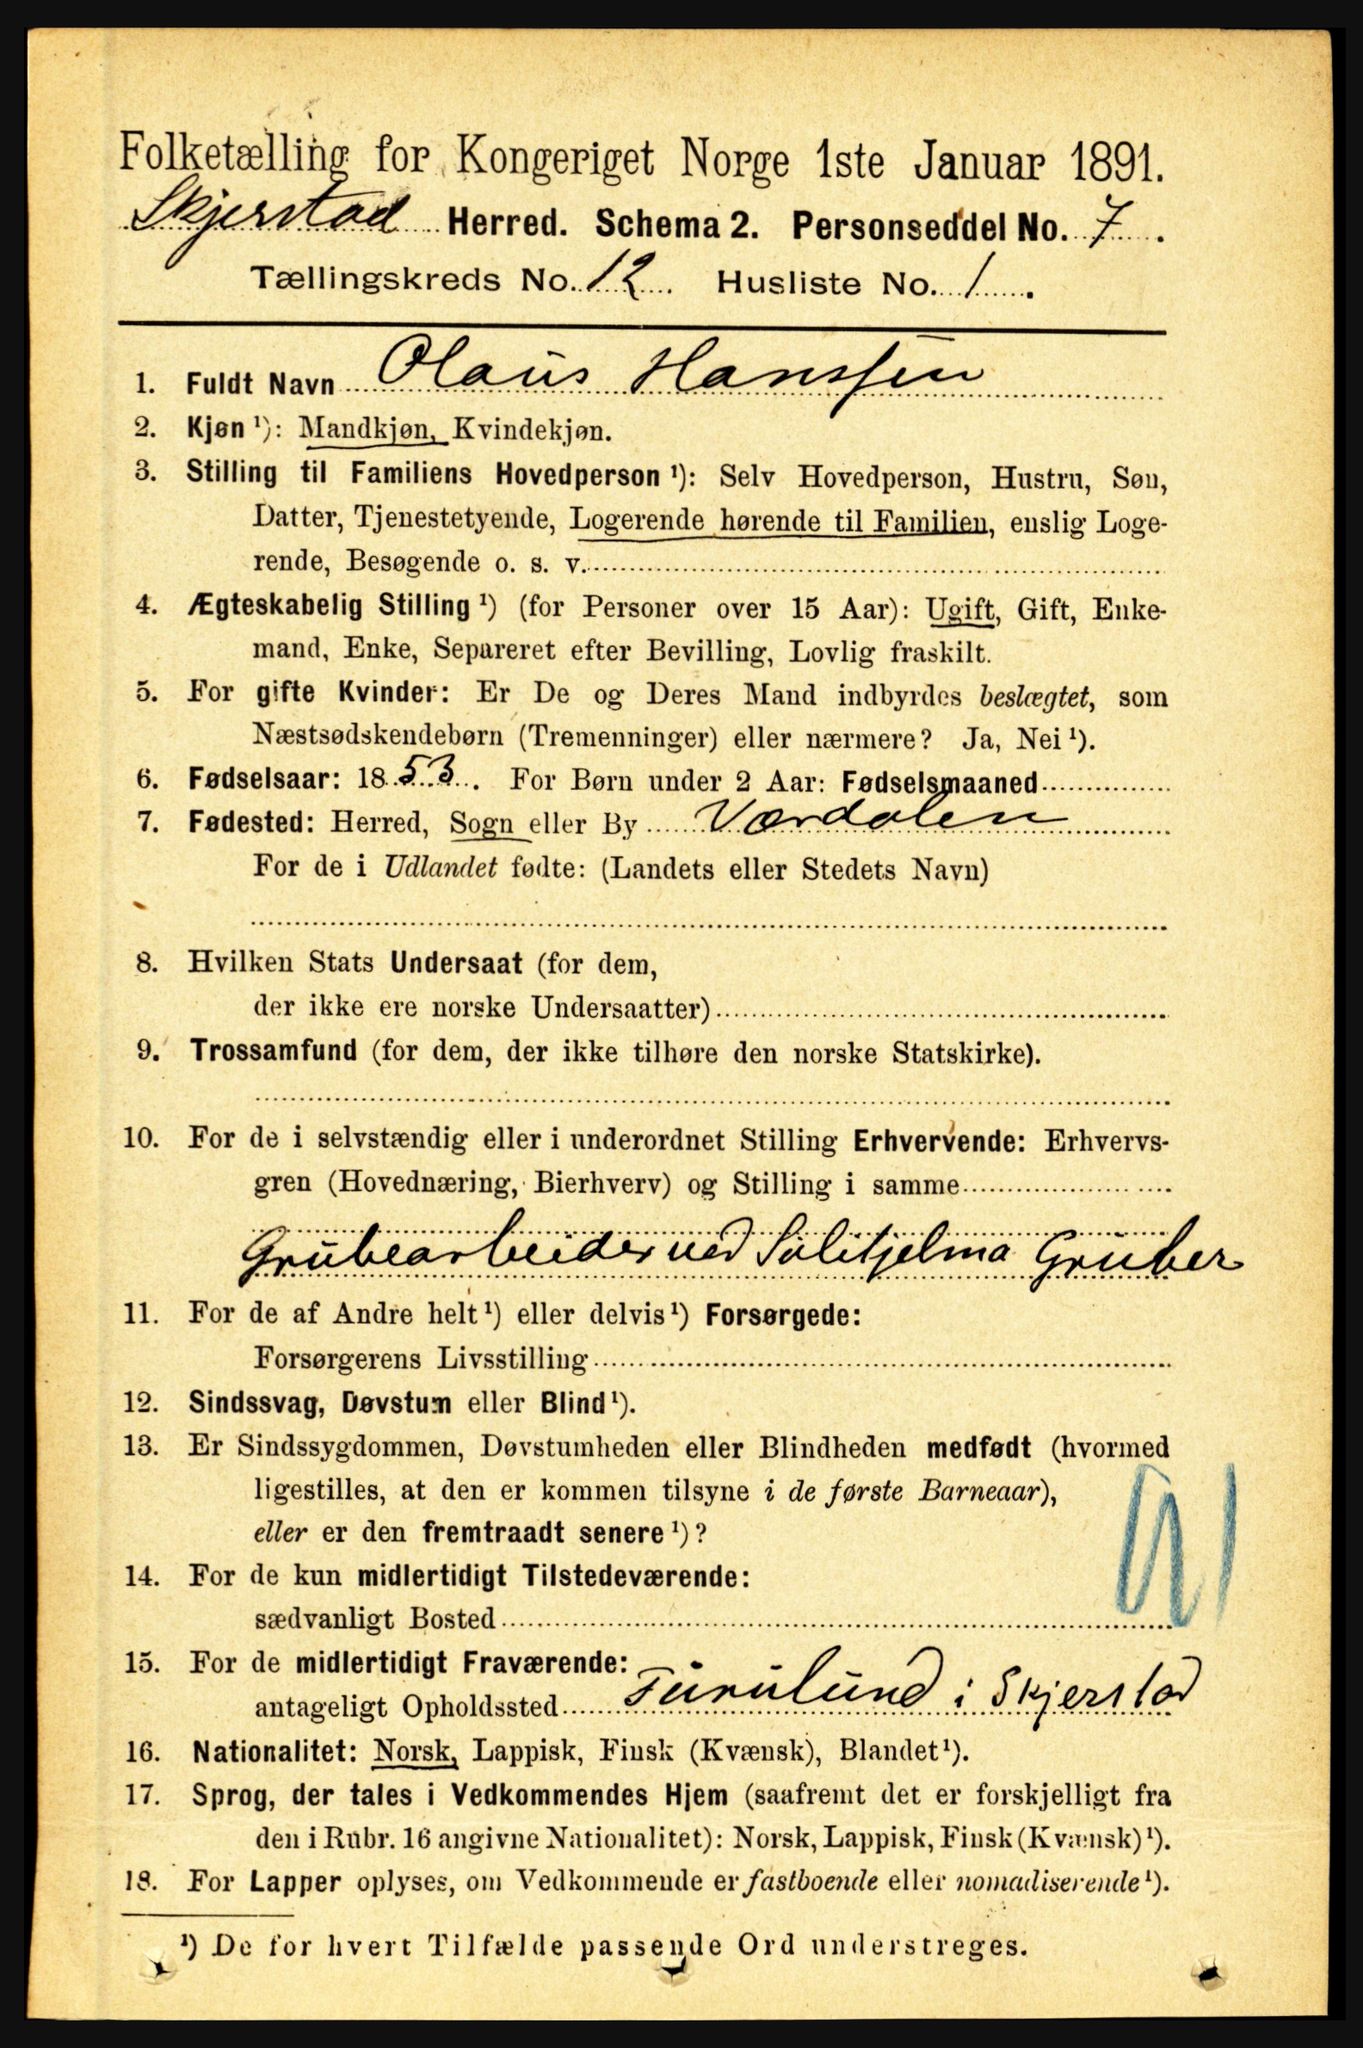 Folketælling for Kongeriget Norge 1ste Januar 1891.
Skjerstad Herred. Schema 2. Personseddel No. 7.
Tællingskreds No. 12. Husliste No. 1.
1. Fuldt Navn Olaus Hanssen
2. Kjøn ¹): Mandkjøn, Kvindekjøn.
3. Stilling til Familiens Hovedperson ¹): Selv Hovedperson, Hustru, Søn,
Datter, Tjenestetyende, Logerende hørende til Familien, enslig Loge-
rende, Besøgende o. s. v.
4. Ægteskabelig Stilling ¹) (for Personer over 15 Aar): Ugift, Gift, Enke-
mand, Enke, Separeret efter Bevilling, Lovlig fraskilt.
5. For gifte Kvinder: Er De og Deres Mand indbyrdes beslægtet, som
Næstsødskendebørn (Tremenninger) eller nærmere? Ja, Nei ¹).
6. Fødselsaar: 1853. For Børn under 2 Aar: Fødselsmaaned
7. Fødested: Herred, Sogn eller By Værdalen
For de i Udlandet fødte: (Landets eller Stedets Navn)
8. Hvilken Stats Undersaat (for dem,
der ikke ere norske Undersaatter)
9. Trossamfund (for dem, der ikke tilhøre den norske Statskirke).
10. For de i selvstændig eller i underordnet Stilling Erhvervende: Erhvervs-
gren (Hovednæring, Bierhverv) og Stilling i samme
Grubearbeider ved Sulitjelma Gruber
11. For de af Andre helt ¹) eller delvis ¹) Forsørgede:
Forsørgerens Livsstilling
12. Sindssvag, Døvstum eller Blind ¹).
13. Er Sindssygdommen, Døvstumheden eller Blindheden medfødt (hvormed
ligestilles, at den er kommen tilsyne i de første Barneaar),
eller er den fremtraadt senere ¹)?
14. For de kun midlertidigt Tilstedeværende:
sædvanligt Bosted
15. For de midlertidigt Fraværende:
antageligt Opholdssted Furulund i Skjerstad
16. Nationalitet: Norsk, Lappisk, Finsk (Kvænsk), Blandet ¹).
17. Sprog, der tales i Vedkommendes Hjem (saafremt det er forskjelligt fra
den i Rubr. 16 angivne Nationalitet): Norsk, Lappisk, Finsk (Kvænsk) ¹).
18. For Lapper oplyses, om Vedkommende er fastboende eller nomadiserende ¹).
¹) De for hvert Tilfælde passende Ord understreges.